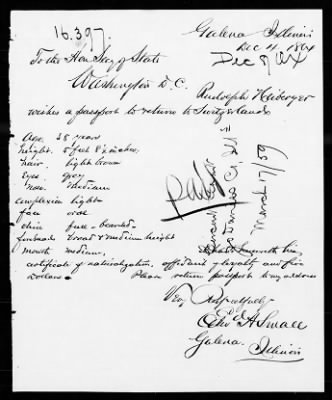 16.397.
Galena Illinois
Dec 4 1864
Dec 8/64
To the Hon Secy of State
Washington D.C.
Rudolph Heiberger
wishes a passport to return to Switzerland
Age 28 year
height. 5 feet 8 ½ inches
hair. light brown
Eyes grey
nose medium
complexion light
face oval
chin full - bearded
forehead broad & medium height
mouth medium,
his
certificate of naturalization, affidavit of loyalty and five
Dollars. Please return passport to my address
Very Respectfully
Edw A Small
Galena.
Illinois
March 17/59